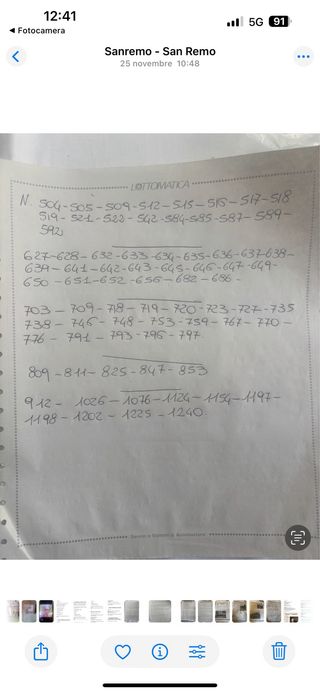 12:41
5G 91
◀ Fotocamera
Sanremo - San Remo
25 novembre 10:48
LOTTOMATICA
N. 504-505-509-512-513-515-517-518
519-521-522-542-584-585-587-589-
592
627-628-632-633-634-635-636-637-638-
639-641-642-643-645-646-647-649-
650-651-652-656-682-686-
703-709-718-719-720-723-727-735
738-746-748-753-759-767-770-
776-791-793-796-797
809-811-825-847-853
912-1026-1076-1124-1154-1197-
1198-1202-1225-1240.